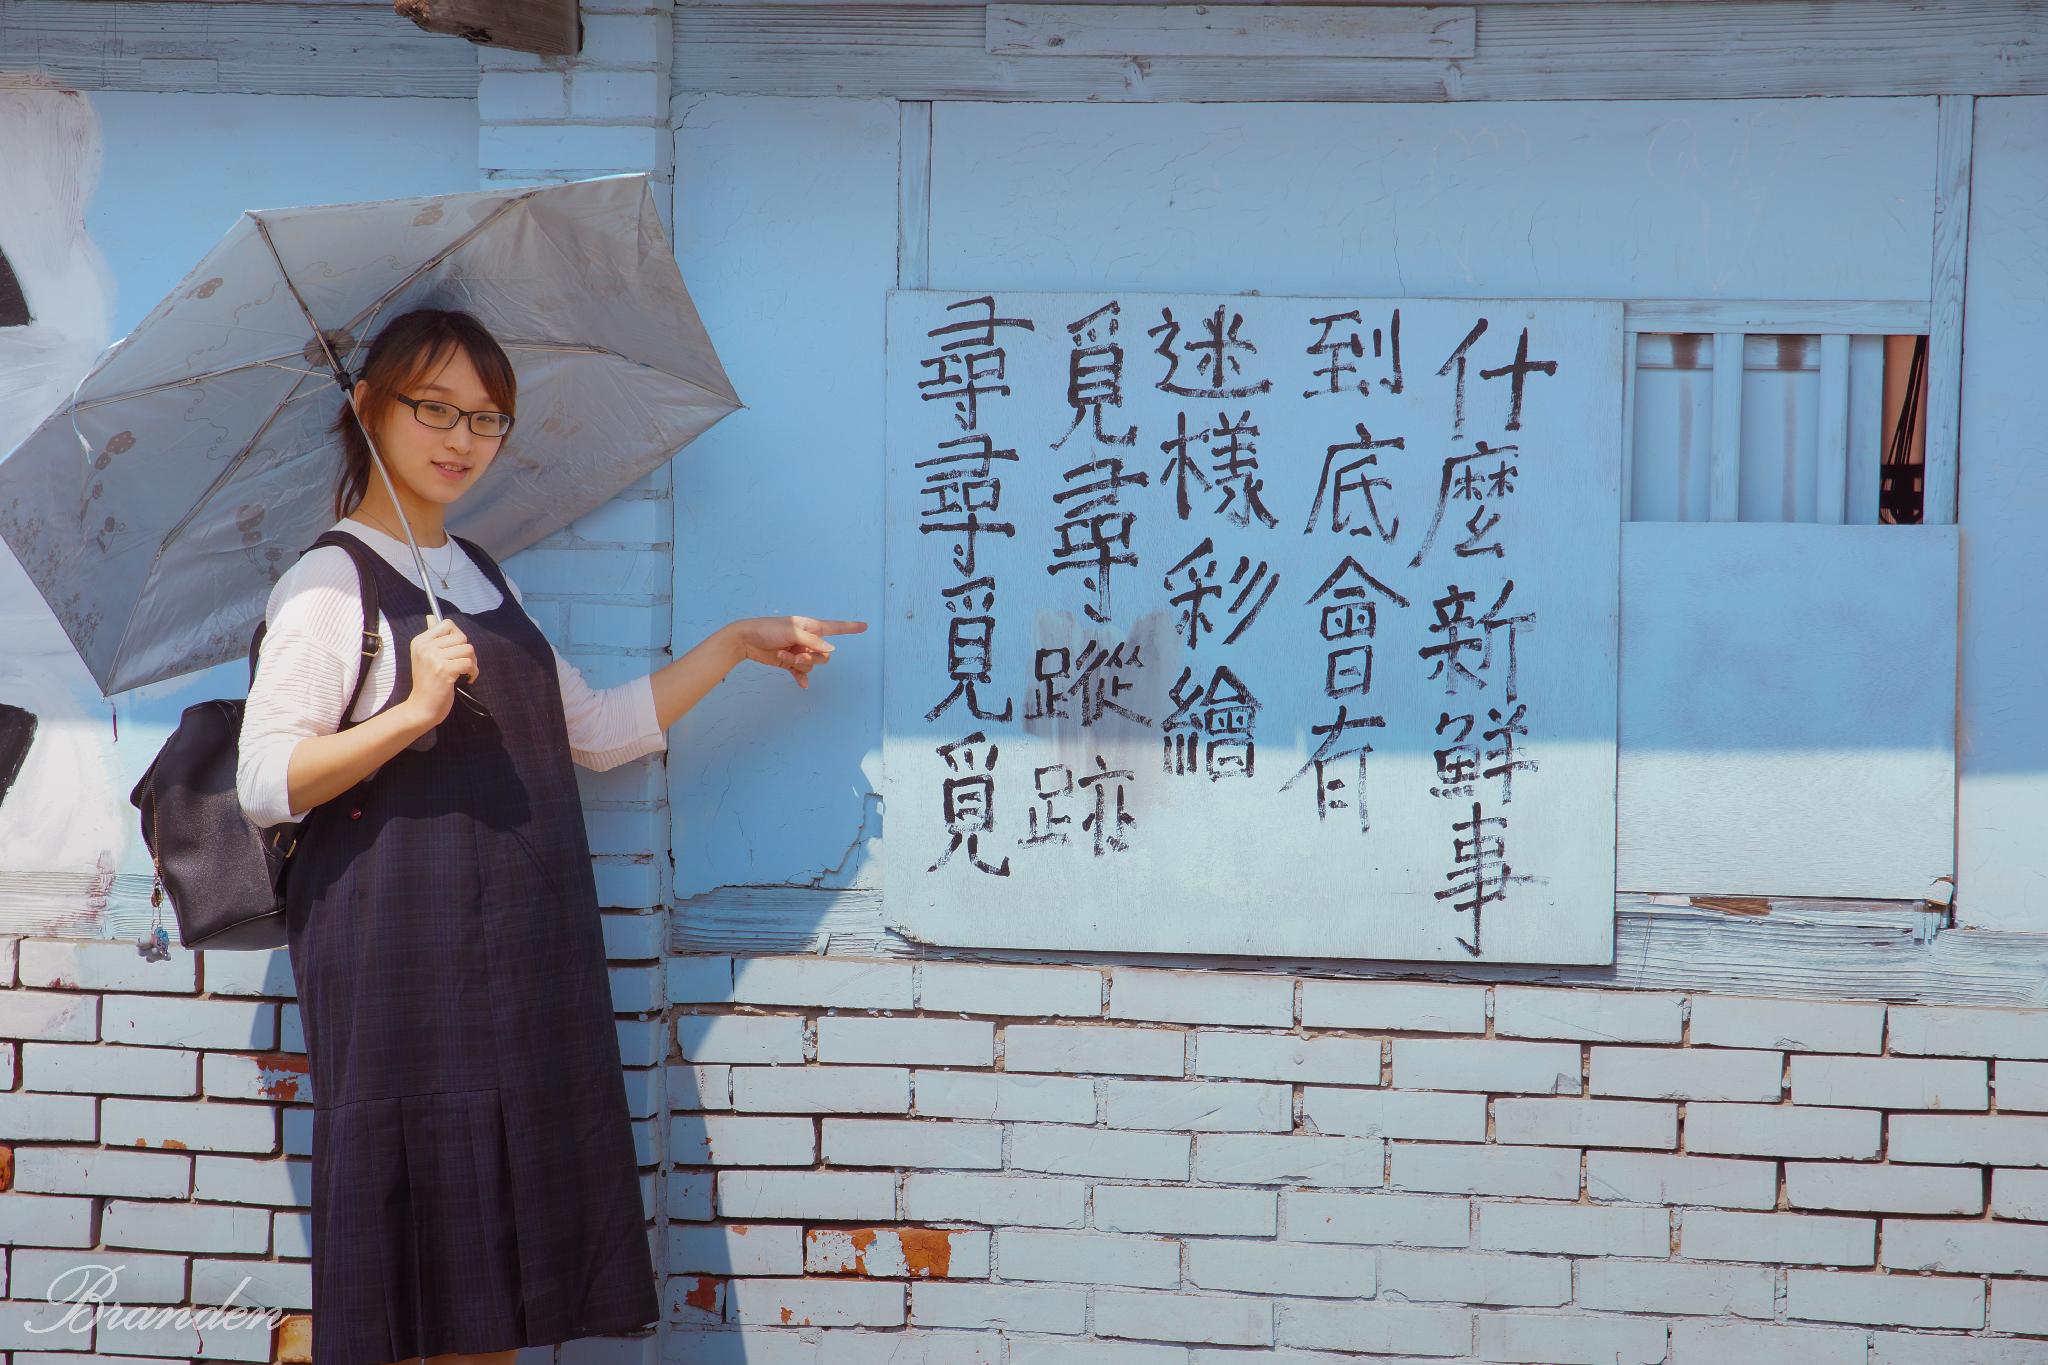 尋尋覓覓
覓尋蹤跡
迷樣彩繪
到底會有
什麼新鮮事
Branden